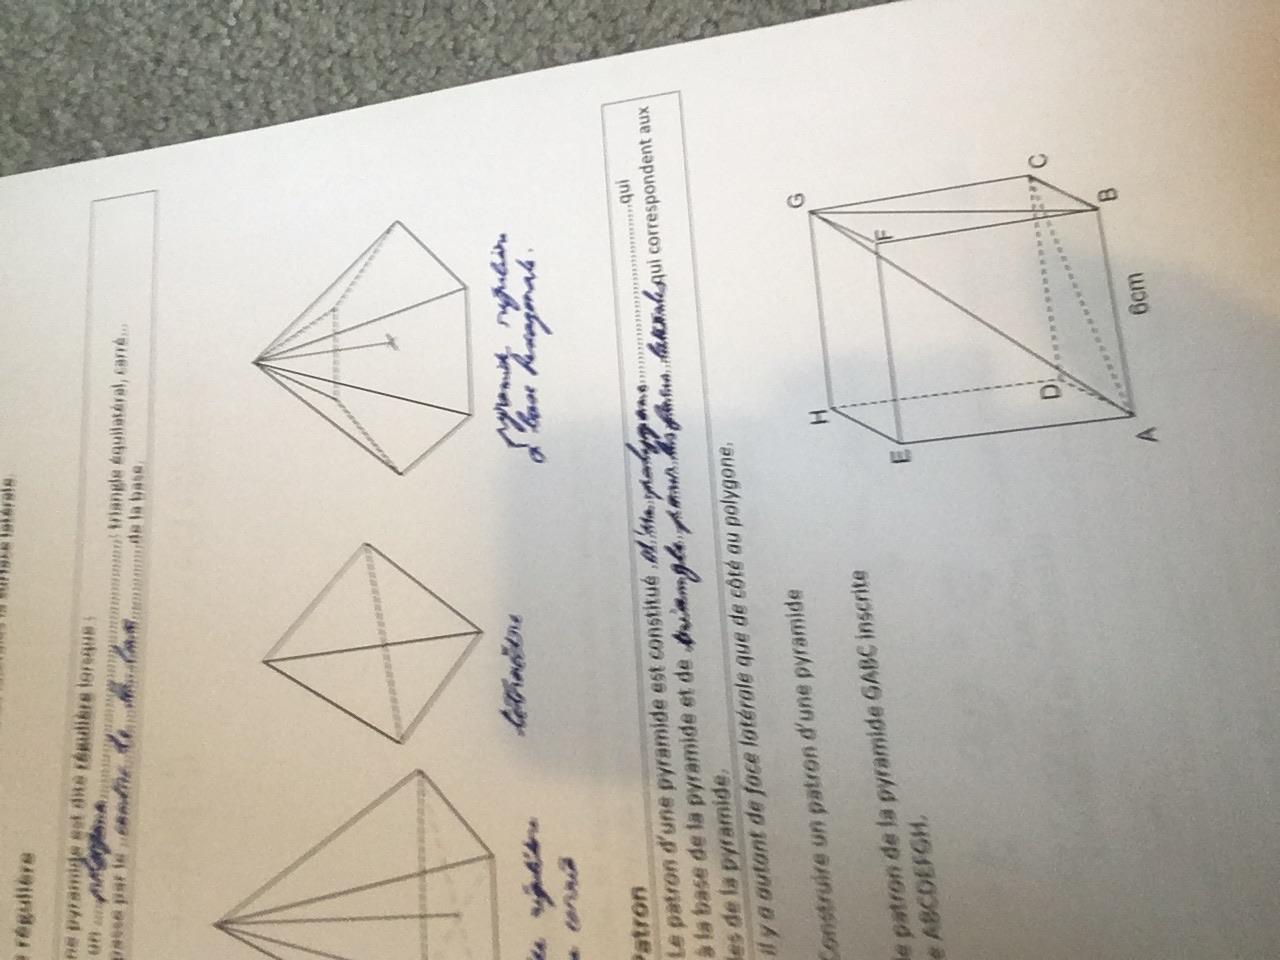 surface latérale.
e régulière
ne pyramide est dite régulière lorsque :
un polygone : triangle équilatéral, carré...
passe par le centre de la base de la base.
régulière
tétraèdre
pyramide régulière
à base hexagonale.
Patron
Le patron d'une pyramide est constitué d'un polygone qui
à la base de la pyramide et de triangle pour les faces latérales qui correspondent aux
les de la pyramide.
il y a autant de face latérale que de côté au polygone.
Construire un patron d'une pyramide
le patron de la pyramide GABC inscrite
e ABCDEFGH.
G
H
F
E
D
C
B
A
6cm